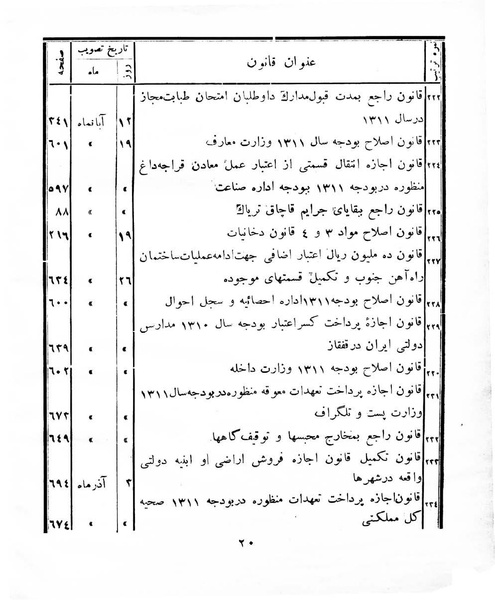 نمره ترتیب	عنوان قانون	تاریخ تصویب	صفحه
روز	ماه
۲۲۲	قانون راجع بمدت قبول مدارك داوطلبان امتحان طبابت مجاز
در سال ۱۳۱۱	۱۲	آبانماه	۲۴۱
۲۲۳	قانون اصلاح بودجه سال ۱۳۱۱ وزارت معارف	۱۹	»	۶۰۱
۲۲۴	قانون اجازه انتقال قسمتی از اعتبار عمل معادن قراجه‌داغ
منظوره در بودجه ۱۳۱۱ ببودجه اداره صناعت	»	»	۵۹۷
۲۲۵	قانون راجع ببقایای جرایم قاچاق تریاك	»	»	۸۸
۲۲۶	قانون اصلاح مواد ۳ و ٤ قانون دخانیات	۱۹	»	۲۱۶
۲۲۷	قانون ده ملیون ریال اعتبار اضافی جهت ادامه عملیات ساختمان
راه‌آهن جنوب و تکمیل قسمتهای موجوده	۲۶	»	۶۳٤
۲۲۸	قانون اصلاح بودجه ۱۳۱۱ اداره احصائیه و سجل احوال	»	»	۶۰۰
۲۲۹	قانون اجازهٔ پرداخت کسر اعتبار بودجه سال ۱۳۱۰ مدارس
دولتی ایران در قفقاز	»	»	۶۳۹
۲۳۰	قانون اصلاح بودجه ۱۳۱۱ وزارت داخله	»	»	۶۰۲
۲۳۱	قانون اجازه پرداخت تعهدات معوقه منظوره در بودجه سال ۱۳۱۱
وزارت پست و تلگراف	»	»	۶۷۳
۲۳۲	قانون راجع بمخارج محبسها و توقیف گاهها	»	»	۶٤۹
۲۳۳	قانون تکمیل قانون اجازه فروش اراضی او ابنیه دولتی
واقعه در شهرها	۳	آذر ماه	۶۹٤
۲۳٤	قانون اجازه پرداخت تعهدات منظوره در بودجه ۱۳۱۱ صحیه
کل مملکتی	»	»	۶۷٤
۲۰